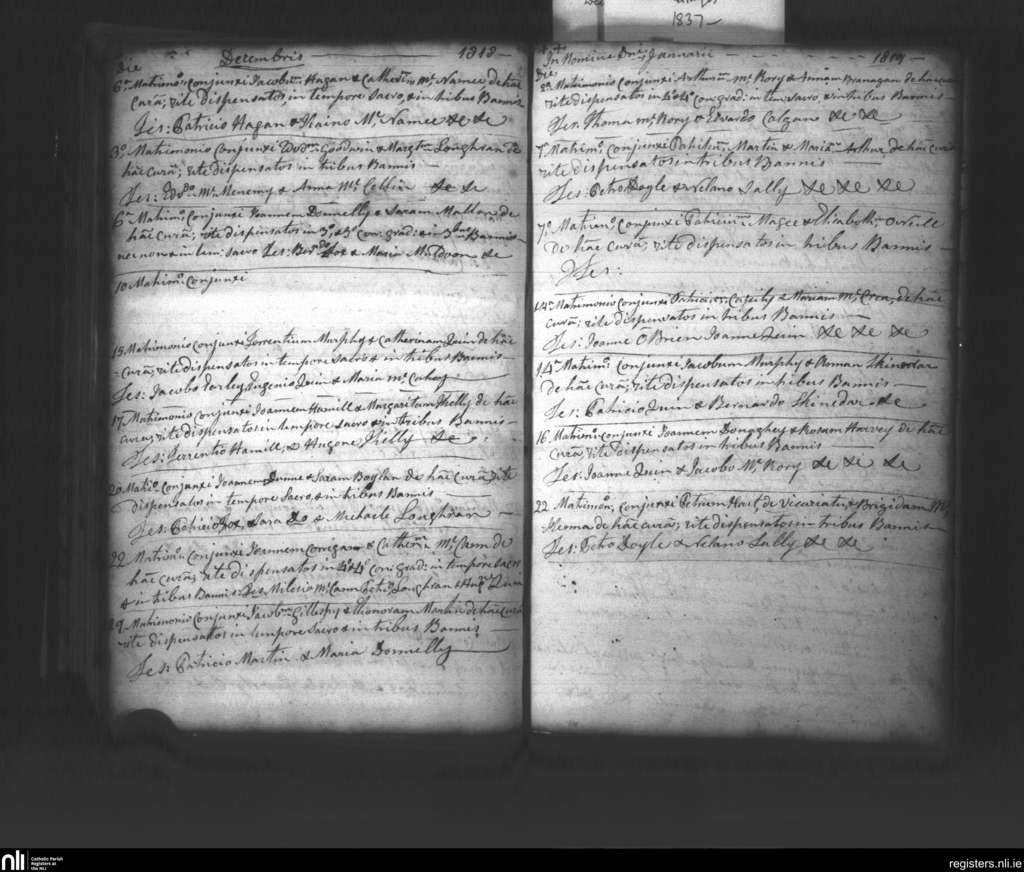 1837
Die Decembris 1818
6a Matimo: conjunxi Jacobm Hagan & Cathern Mc Namee de hac
cura, rite dispensatos, in tempore Sacro, & in tribus Bannis
Tes: Patricio Hagan & Mc Namee &c &c
3o Matrimonio Conjunxi Goodwin & Margtm Loughran de
hac cura; rite dispensatos in tribus Bannis
Tes: Mc Menemy & Anna Mc &c &c
6a Matimo: conjunxi Joannem Donnelly & Saram Mallory de
hac cura; rite dispensatos in 3o & 3o con: grad: & in Bannis
nec non & in tem: Sacro Tes: & Maria &c
10 Matimo: Conjunxi
15 Matrimonio conjunxi Terrentium Murphy & Catherinam Quin de hac
cura, rite dispensatos in tempore Sacro & in tribus Bannis
Tes: Jacobo Eugenio Quin & Maria
17 Matrimonio conjunxi Joannem Hamill & Margaritam Kelly de hac
cura; rite dispensatos in tempore Sacro & in tribus Bannis
Tes: Terrentio Hamill, & Hugone Kelly &c
20 Matio: Conjunxi Joannem Dunne & Saram Boylan de hac cura rite
dispensatos in tempore Sacro, & in tribus Bannis
Tes: Patricio Sara & Michaele Loughran
22 Matimo: Conjunxi Joannem & Catherina Mc Cann de
hac cura; rite dispensatos in 4o & 4o con: grad: in tempore Sacro
& in tribus Bannis Tes: Milesio Mc Cann Loughran & Quin
29 Matrimonio conjunxi Jacobm Gillespy & Honoram Martin de hac cura
rite dispensatos in tempore Sacro & in tribus Bannis
Tes: Patricio Martin & Maria Donnelly
In Nomine Dni Januarii 1819
Die
2a Matrimonio conjunxi Arthurm Mc Rory & Annam Branagan de hac cura
rite dispensatos in 4o & 4o con: grad: in tem: Sacro, & in tribus Bannis
Tes: Thoma Mc Rory & Edvardo Colgano &c &c
7 Matimo: conjunxi Martin & Mariam Arthur de hac cura
rite dispensatos in tribus Bannis
Tes: Petro Doyle & Lally &c &c &c
7o Matimo: Conjunxi Patricium Magee & Elizabeth: O'Neill
de hac cura; rite dispensatos in tribus Bannis
Tes:
14 Matrimonio conjunxi & Mariam Mc de hac
cura; rite dispensatos in tribus Bannis
Tes: Joanne O'Brien Joanne Quin &c &c &c
14 Matimo: conjunxi Jacobum Murphy &
de hac cura; rite dispensatos in tribus Bannis
Tes: Patricio Quin & Bernardo &c
16 Matimo: conjunxi Joannem Donaghey & Rosam Harvey de hac
cura, rite dispensatos in tribus Bannis
Tes: Joanne Quin & Jacobo Mc Rory &c &c &c
22 Matimon: conjunxi Petrum Hart de Vicariatu, & Brigidam Mc
de hac cura; rite dispensatos in tribus Bannis
Tes: Petro Doyle & Lally &c &c
nli
Catholic Parish
Registers at
the NLI
registers.nli.ie